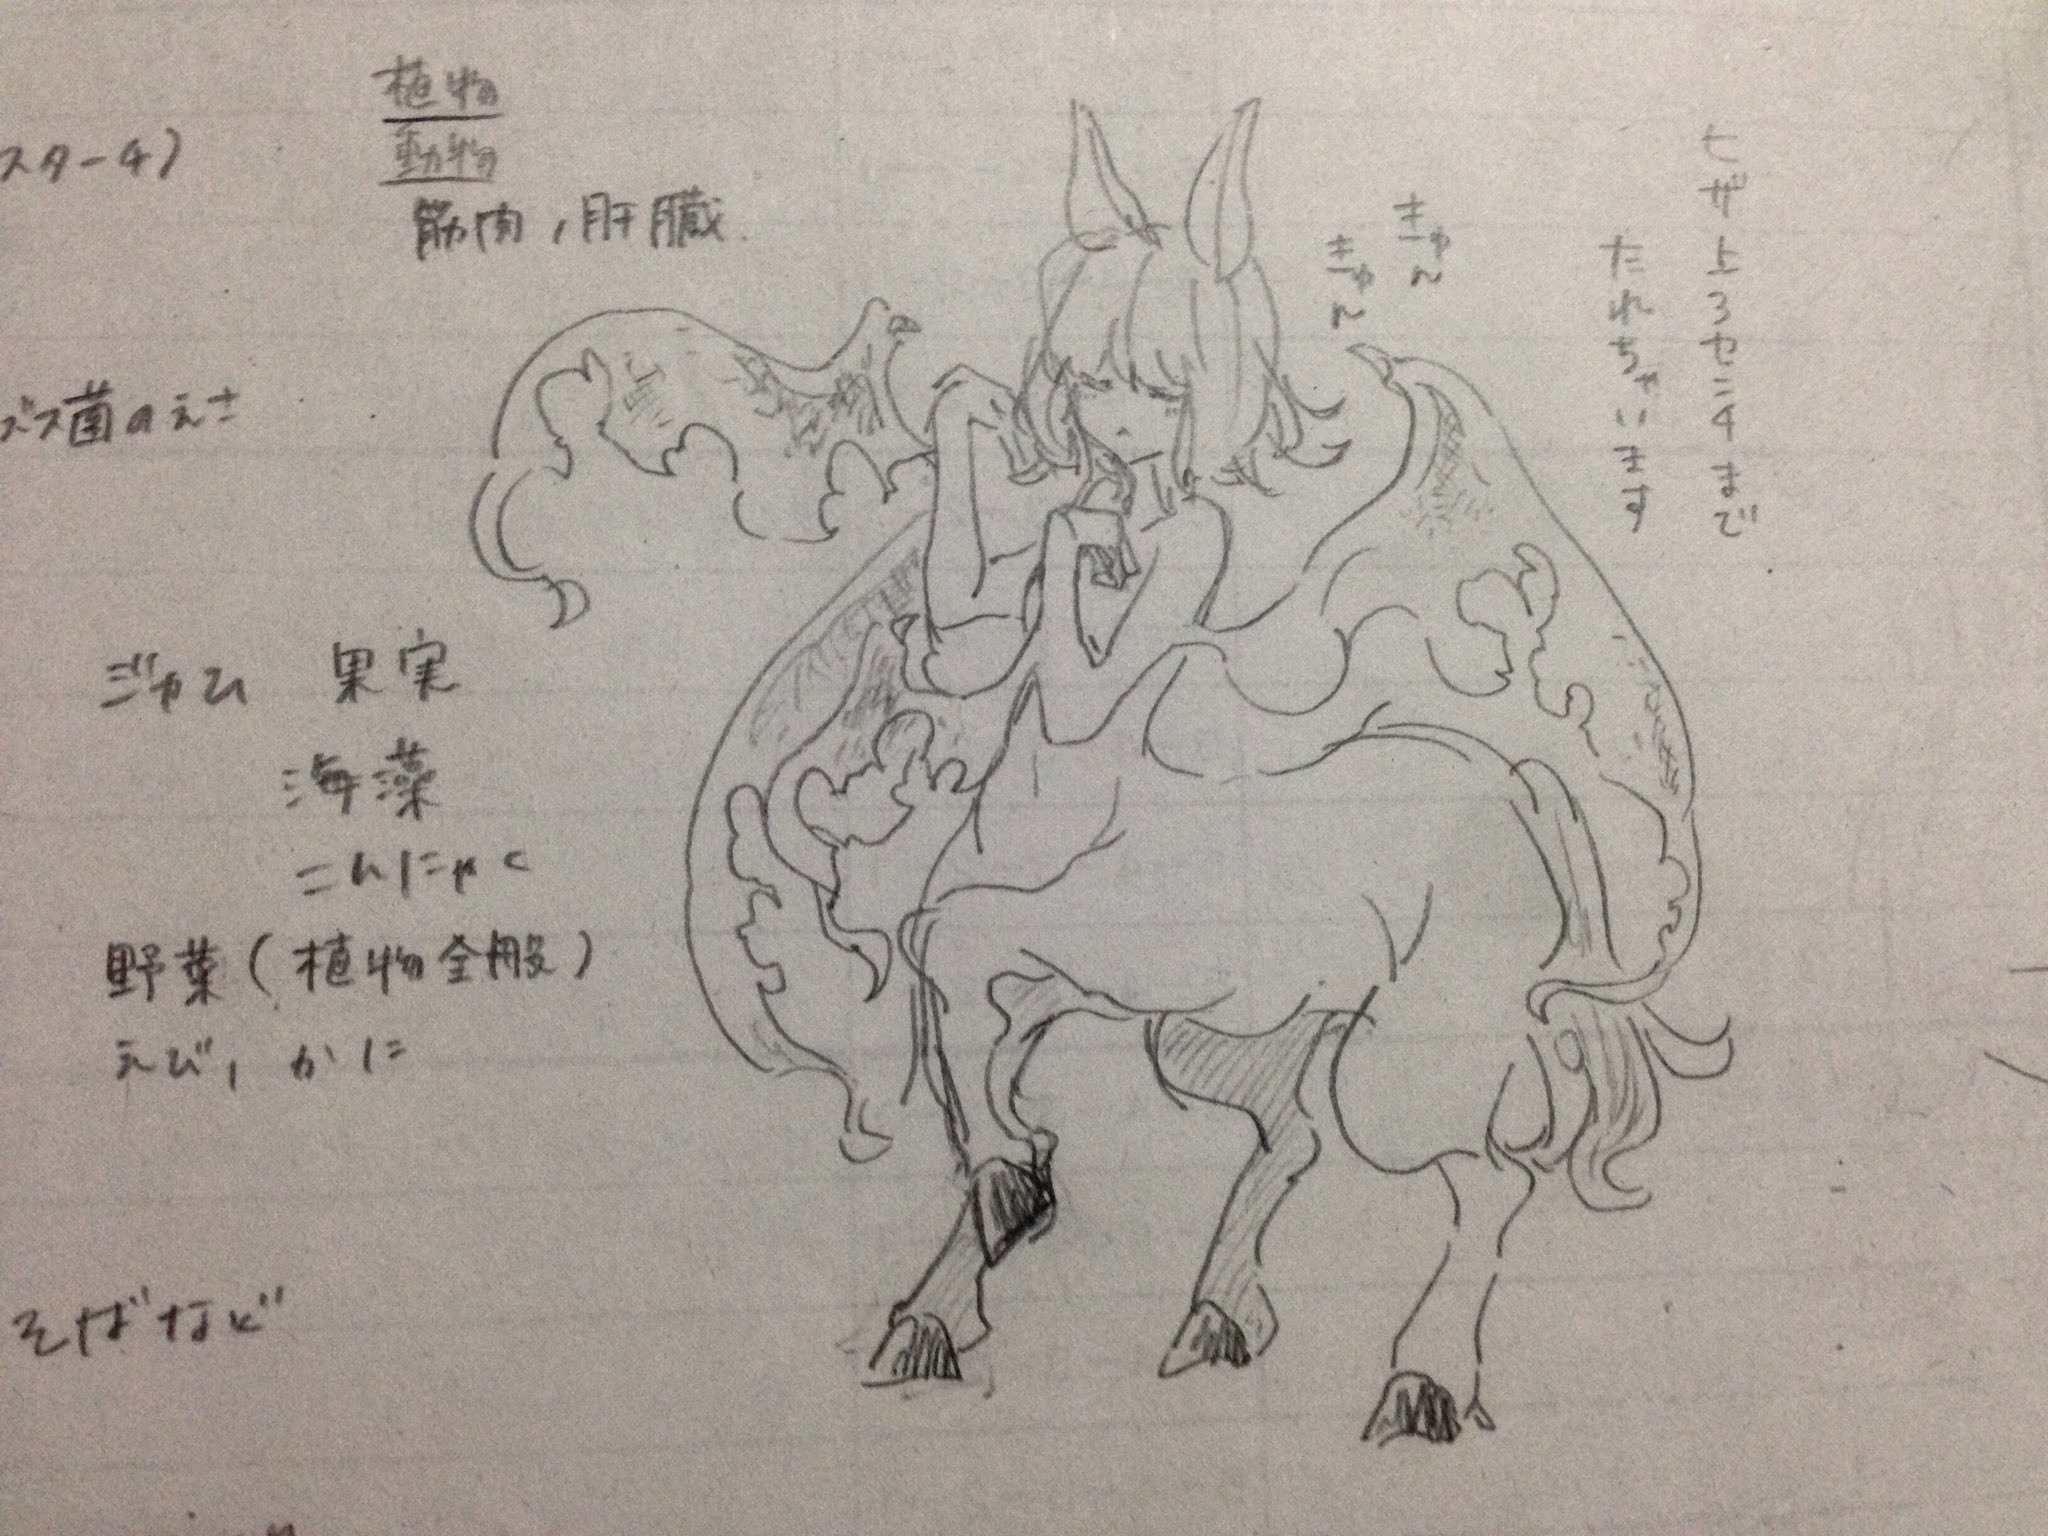 スターチ)
植物
動物
筋肉,肝臓
ズス菌のえさ
ジャム 果実
海藻
こんにゃく
野菜(植物全般)
えび, かに
そばなど
ヒザ上3センチまで
たれちゃいます
きゅん
きゅん